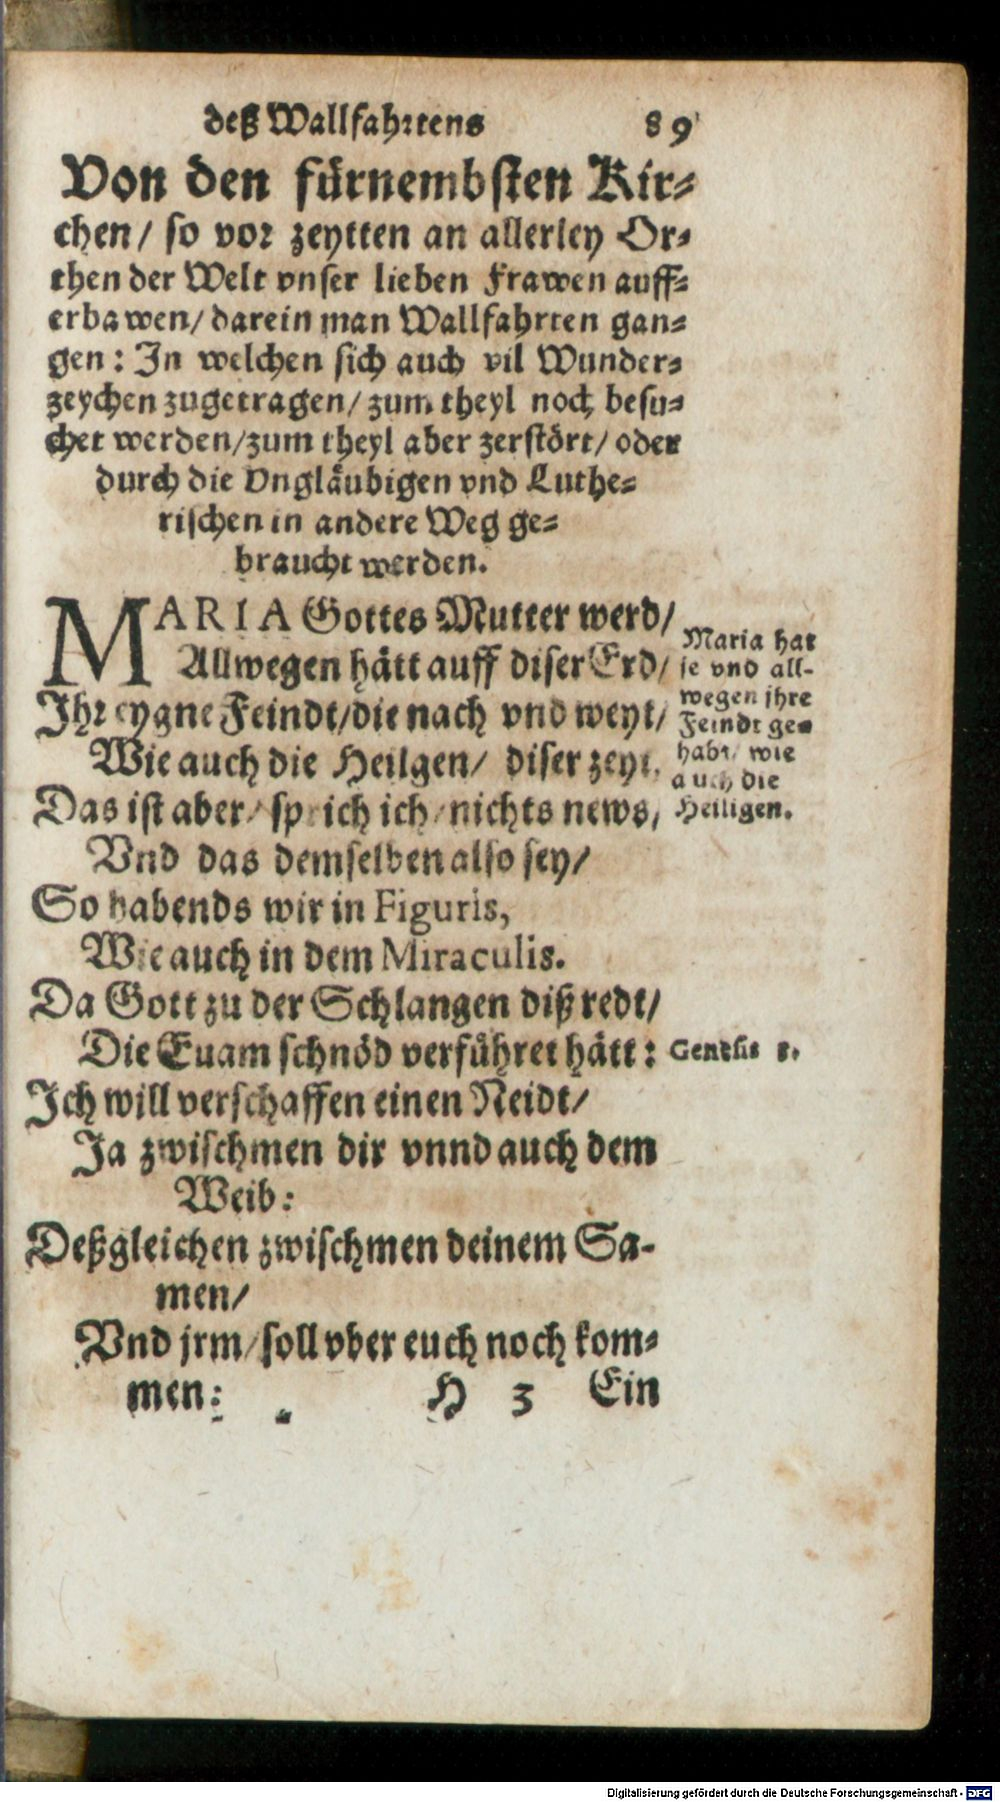 deß Wallfahrtens 89
Von den fürnembsten Kir=
chen/ so vor zeytten an allerley Or=
then der Welt vnser lieben Frawen auff=
erbawen/ darein man Wallfahrten gan=
gen: In welchen sich auch vil Wunder=
zeychen zugetragen/ zum theyl noch besu=
chet werden/ zum theyl aber zerstört/ oder
durch die Vngläubigen vnd Luthe=
rischen in andere Weg ge=
braucht werden.
MARIA Gottes Mutter werd/
Allwegen hätt auff diser Erd/
Ihr eygne Feindt/ die nach vnd weyt/
Wie auch die Heilgen/ diser zeyt,
Das ist aber/ sprich ich/ nichts news,
Vnd das demselben also sey/
So habends wir in Figuris,
Wie auch in dem Miraculis.
Da Gott zu der Schlangen diß redt/
Die Euam schnöd verführet hätt:
Ich will verschaffen einen Neidt/
Ja zwischmen dir vnnd auch dem
Weib:
Deßgleichen zwischmen deinem Sa-
men/
Vnd jrm/ soll vber euch noch kom=
men:
H 3 Ein
Maria hat
je vnd all-
wegen jhre
Feindt ge=
habt/ wie
auch die
Heiligen.
Genesis
Digitalisierung gefördert durch die Deutsche Forschungsgemeinschaft - DFG